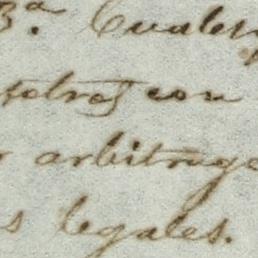 3.a Cualq
con
arbitrage
s legales.